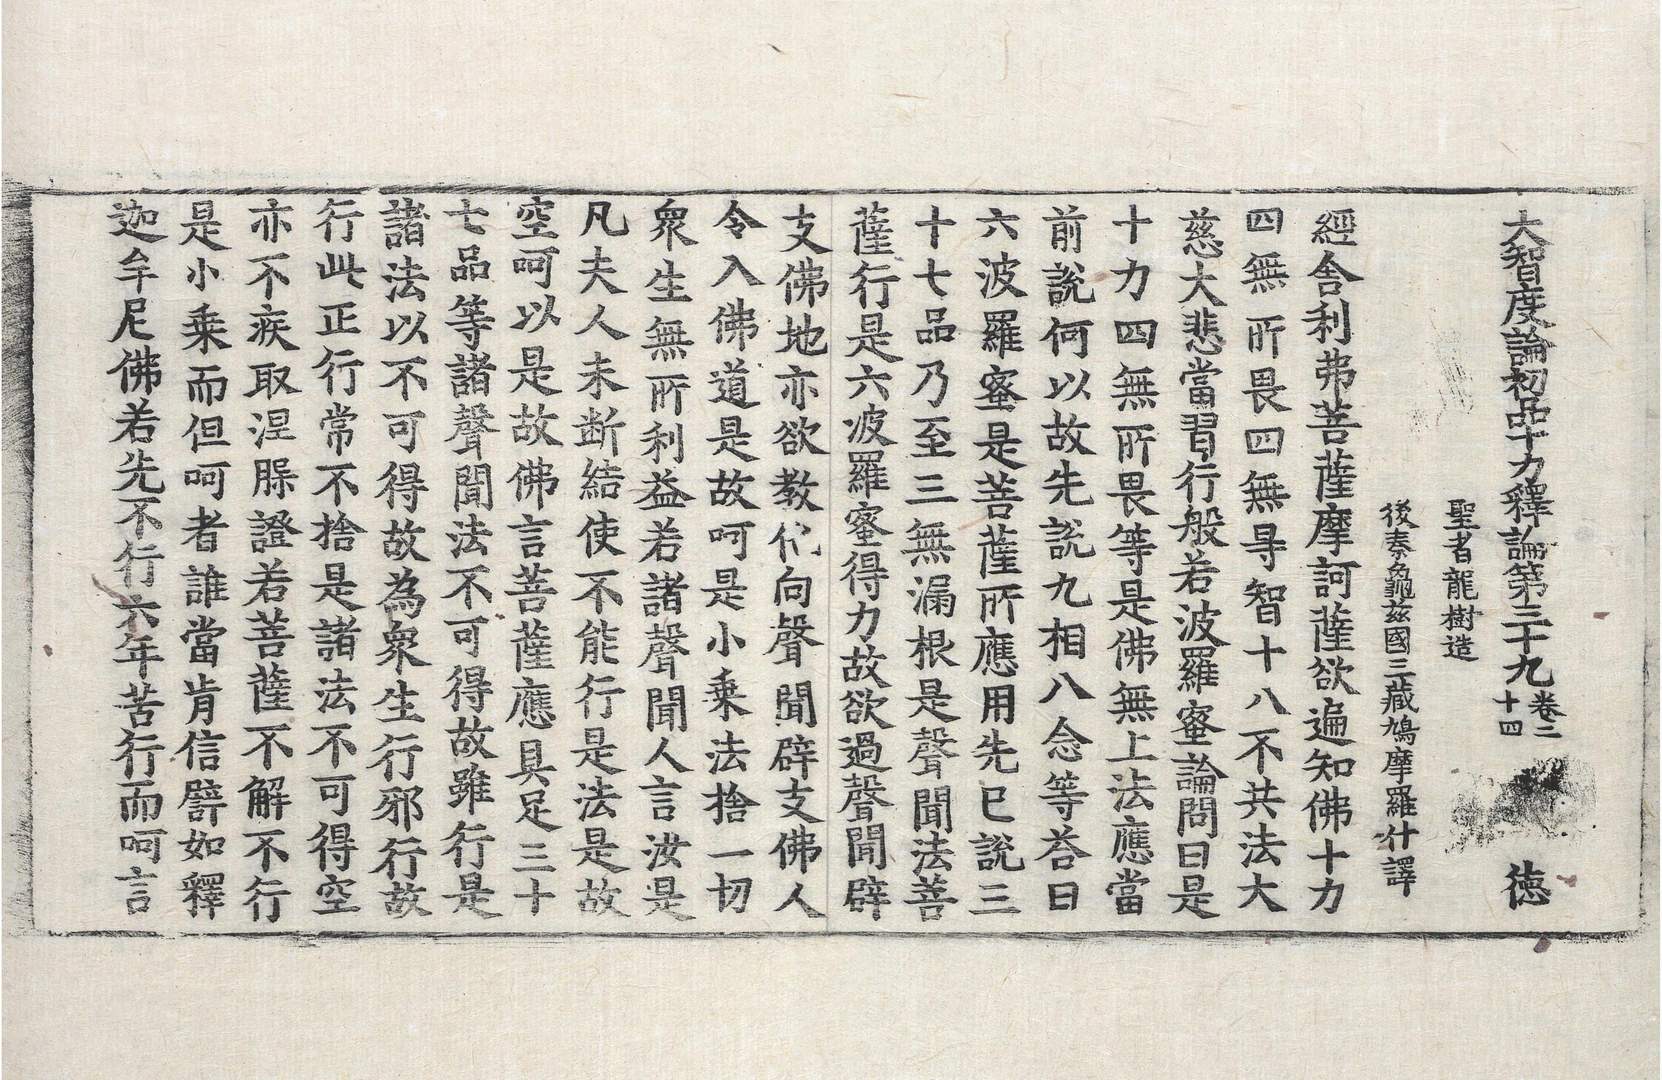 大智度論初品十力釋論第三十九 卷二十四 德
聖者龍樹造
後秦龜茲國三藏鳩摩羅什譯
經舍利弗菩薩摩訶薩欲遍知佛十力
四無所畏四無㝵智十八不共法大
慈大悲當習行般若波羅蜜論問曰是
十力四無所畏等是佛無上法應當
前說何以故先說九相八念等荅曰
六波羅蜜是菩薩所應用先已說三
十七品乃至三無漏根是聲聞法菩
薩行是六波羅蜜得力故欲過聲聞辟
支佛地亦欲教化向聲聞辟支佛人
令入佛道是故呵是小乘法捨一切
衆生無所利益若諸聲聞人言汝是
凡夫人未断結使不能行是法是故
空呵以是故佛言菩薩應具足三十
七品等諸聲聞法不可得故雖行是
諸法以不可得故為衆生行邪行故
行此正行常不捨是諸法不可得空
亦不疾取涅槃證若菩薩不解不行
是小乘而但呵者誰當肯信譬如釋
迦牟尼佛若先不行六年苦行而呵言